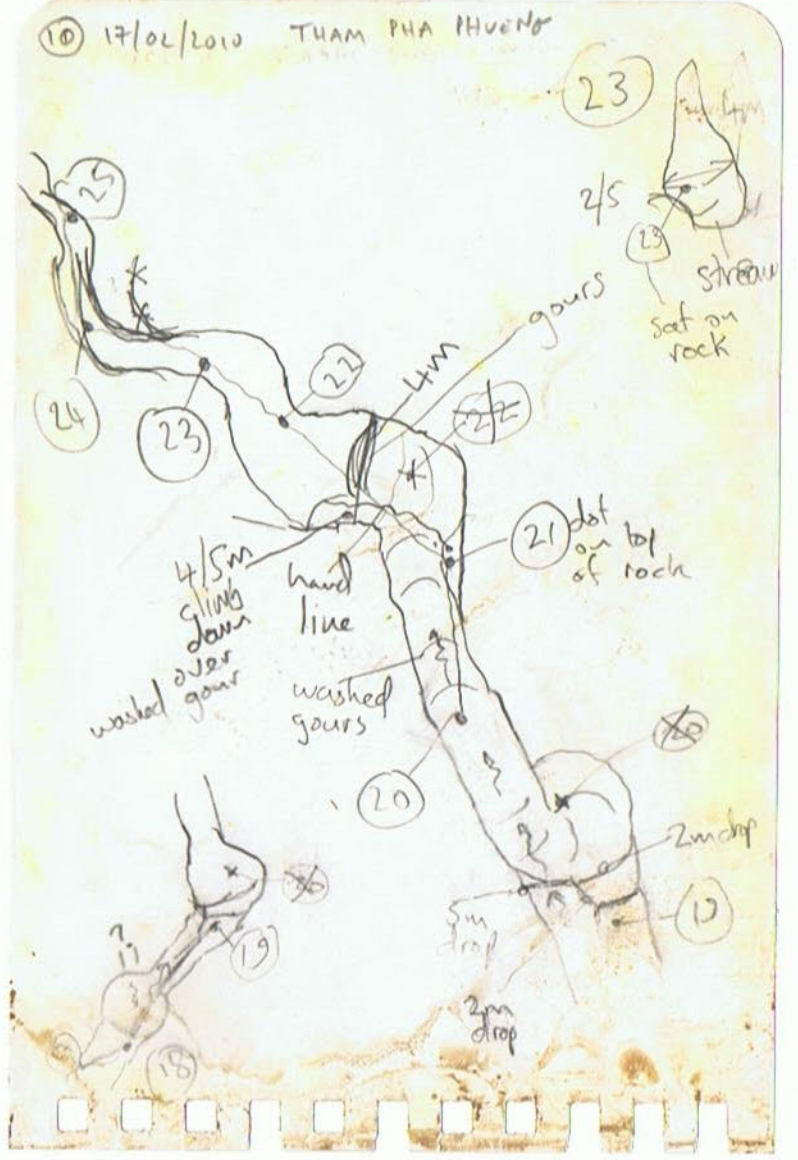 10 17/02/2010 THAM PHA PHUENG
23
4m
2/5
23
stream
sat on
rock
25
gours
4m
22
24
23
21 dot
on top
of rock
4/5m
climb
down
over
washed gour
hand
line
washed
gours
20
20
2m drop
5m
drop
19
2m
drop
?
19
18